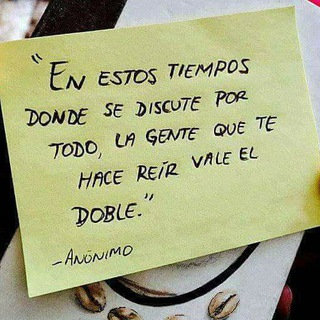 "EN ESTOS TIEMPOS
DONDE SE DISCUTE POR
TODO, LA GENTE QUE TE
HACE REÍR VALE EL
DOBLE."
-ANÓNIMO